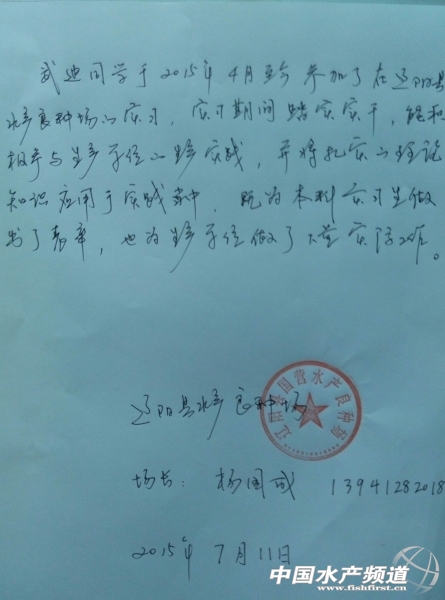 武迪同学于2015年4月至今参加了在辽阳县
水产良种场的实习,实习期间踏实实干,能积
极参与生产单位的生产实践,并将扎实的理论
知识应用于实践当中,既为本科实习生做
出了表率,也为生产单位做了大量实际工作。
辽阳县水产良种场
辽阳县国营水产良种场
场长: 杨国成 13941282018
2015年7月11日
中国水产频道
www.fishfirst.cn